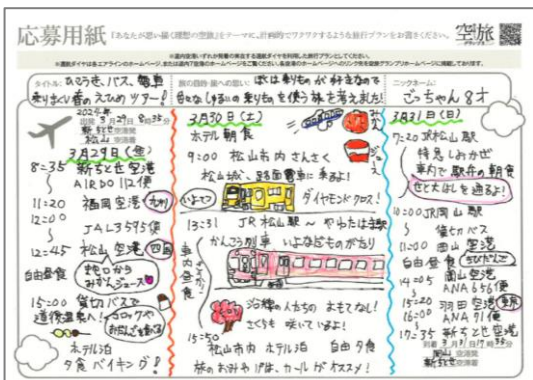 応募用紙
「あなたが思い描く理想の空旅」をテーマに、計画的でワクワクするような旅行プランをお書きください。
空旅
グランプリ
※道内空港いずれか発着の所在する道航ダイヤを利用した旅行プランとしてください。
タイトル:
ひこうき、バス、電車
乗り出い春のえひめツアー!
旅の目的・願いへの思い:
ぼくは乗りものが好きなので
色々なしゅるいの乗りものを使う旅を考えました!
ニックネーム:
ごっちゃん8才
2024年
出発 3月29日 8時35分
新ちとせ 空港発
松山 空港着
3月29日(金)
8:35 新ちとせ空港
AIRDO 112便
11:20 福岡空港 九州
12:00
JAL3595便
12:45 松山空港 四国
自由昼食
蛇口から
みかんジュース
15:00 貸切バスで
道後温泉へ!
コロッケや
おだんごを食べる
ホテル泊
夕食バイキング!
3月30日(土)
ホテル朝食
みかん
ジュース
9:00 松山市内さんさく
松山城、路面電車に乗るよ!
いよてつ
ダイヤモンドクロス!
13:31 JR松山駅〜やわたはま駅
かんこう列車 いよなだものがたり
車内昼食
沿線の人たちのおもてなし!
さくらも咲いているよ!
15:50
松山市内 ホテル泊 自由夕食
旅のおみやげは、カールがオススメ!
3月31日(日)
7:20 JR松山駅
特急しおかぜ
車内で駅弁の朝食
せと大はしを通るよ!
10:00 JR岡山駅
貸切バス
11:00 岡山空港
自由昼食 きびだんご
14:05 岡山空港
ANA656便
15:20 羽田空港
16:00 ANA71便
17:35 新ちとせ空港
到着 3月31日17時35分
岡山 空港発
新ちとせ 空港着